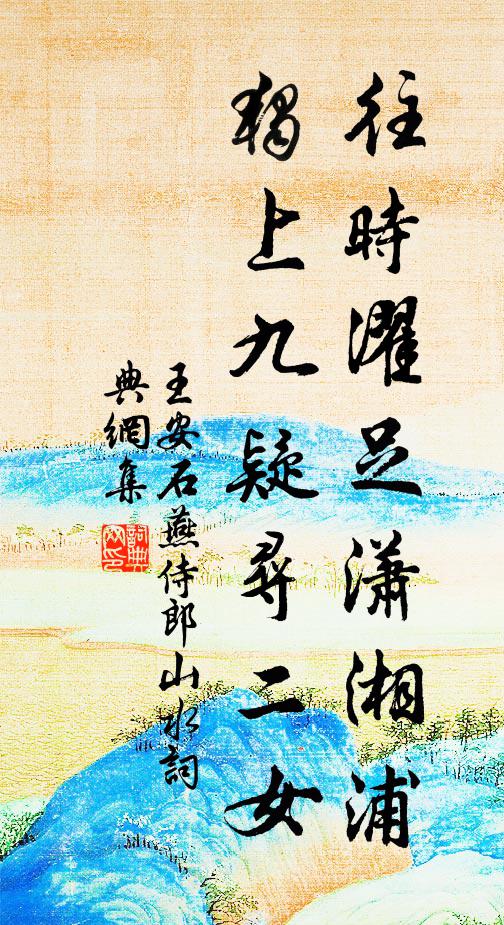 往時濯足瀟湘浦
獨上九疑尋二女
王安石燕侍郎山水詞
典網集
詞典